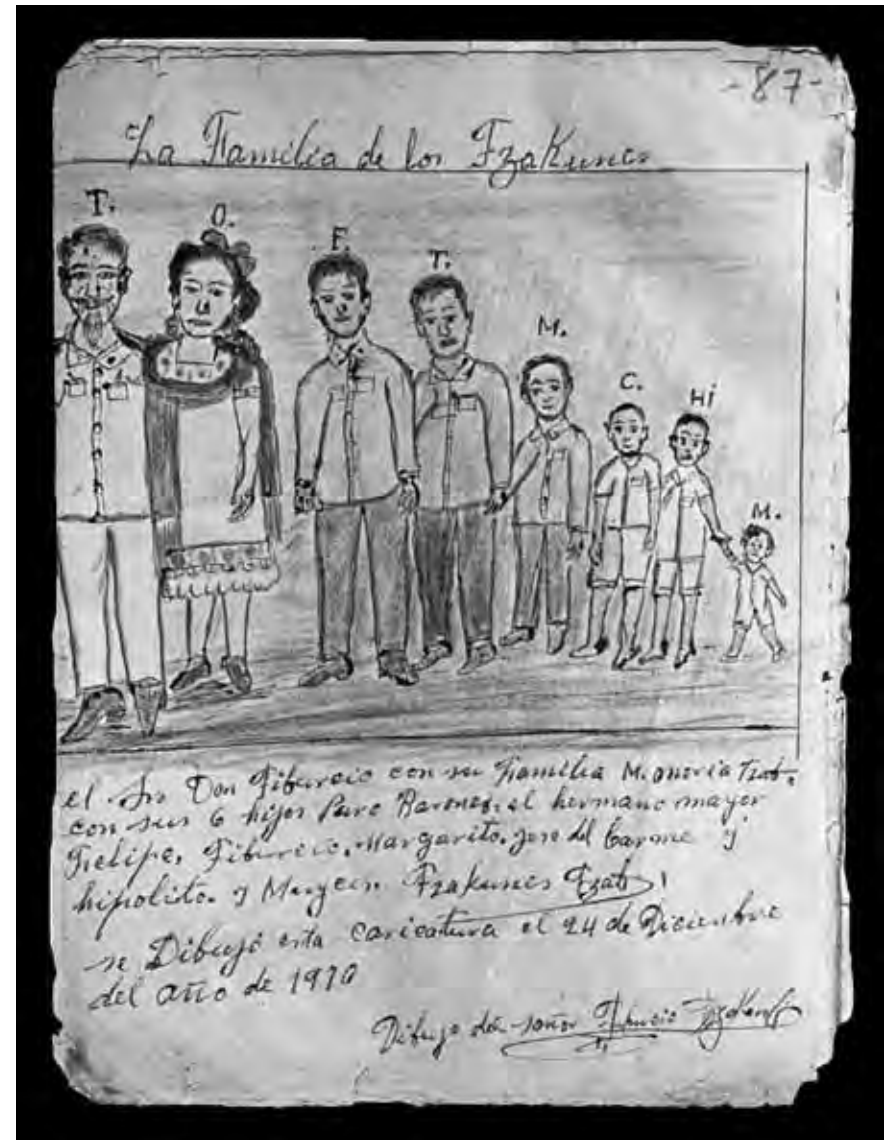 -87-
La Familia de los Tzakunes
T.
O.
F.
T.
M.
C.
Hi
M.
el Sr Don Tiburcio con su Familia M. onoria Tzab.
con sus 6 hijos Puro Barones. el hermano mayor
Frelipe, Tiburcio, Margarito. jose del Carme y
hipolito. y Moyces. Tzakunes Tzab
se Dibujó esta caricatura el 24 de Diciembre
del año de 1970
Dibujo del señor Tiburcio